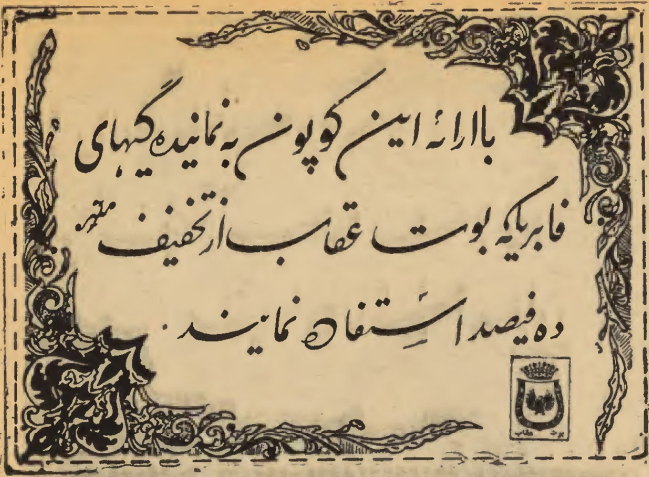 با ارائه این کوپون به نمانیده گیهای
فابریکه بوت عقاب از تخفیف
ده فیصد استفاده نمایند.
بوت عقاب